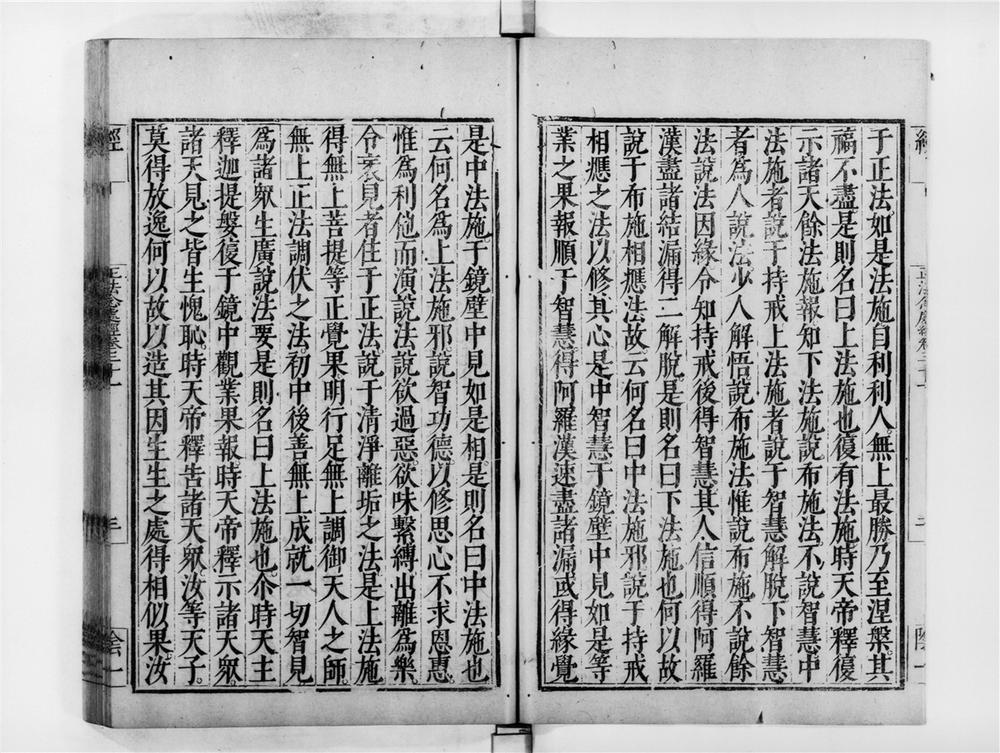 于正法如是法施自利利人無上最勝乃至涅槃其
福不盡是則名曰上法施也復有法施時天帝釋復
示諸天餘法施報知下法施說布施法不說智慧中
法施者說于持戒上法施者說于智慧解脫下智慧
者為人說法少人解悟說布施法惟說布施不說餘
法說法因緣令知持戒後得智慧其人信順得阿羅
漢盡諸結漏得二解脫是則名曰下法施也何以故
說于布施相應法故云何名曰中法施邪說于持戒
相應之法以修其心是中智慧于鏡壁中見如是等
業之果報順于智慧得阿羅漢速盡諸漏或得緣覺
是中法施于鏡壁中見如是相是則名曰中法施也
云何名為上法施邪說智功德以修思心不求恩惠
惟為利他而演說法說欲過惡欲味繫縛出離為樂
令衺見者住于正法說于清淨離垢之法是上法施
得無上菩提等正覺果明行足無上調御天人之師
無上正法調伏之法初中後善無上成就一切智見
為諸眾生廣說法要是則名曰上法施也尒時天主
釋迦提婆復于鏡中觀業果報時天帝釋示諸天眾
諸天見之皆生愧恥時天帝釋告諸天眾汝等天子
莫得放逸何以故以造其因生生之處得相似果汝
經
正法念處經卷三十一
三
陰一